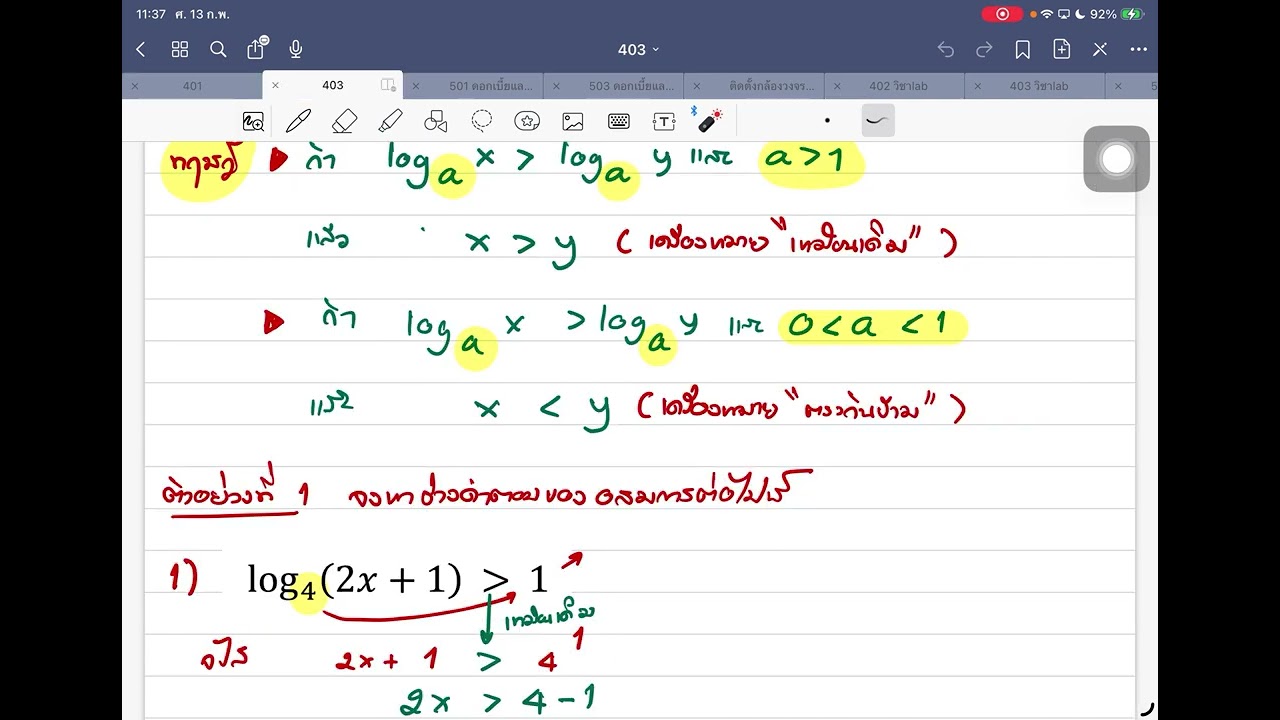 11:37 ศ. 13 ก.พ. 92%
403
401 403 501 ดอกเบี้ยแล... 503 ดอกเบี้ยแล... ติดตั้งกล้องวงจร... 402 วิชาlab 403 วิชาlab 5
ทฤษฎี ถ้า logₐ x > logₐ y และ a > 1
แล้ว x > y (เครื่องหมาย "เหมือนเดิม")
ถ้า logₐ x > logₐ y และ 0 < a < 1
แล้ว x < y (เครื่องหมาย "ตรงกันข้าม")
ตัวอย่างที่ 1 จงหาช่วงคำตอบของอสมการต่อไปนี้
1) log₄(2x + 1) > 1
เหมือนเดิม
จะได้ 2x + 1 > 4¹
2x > 4 - 1